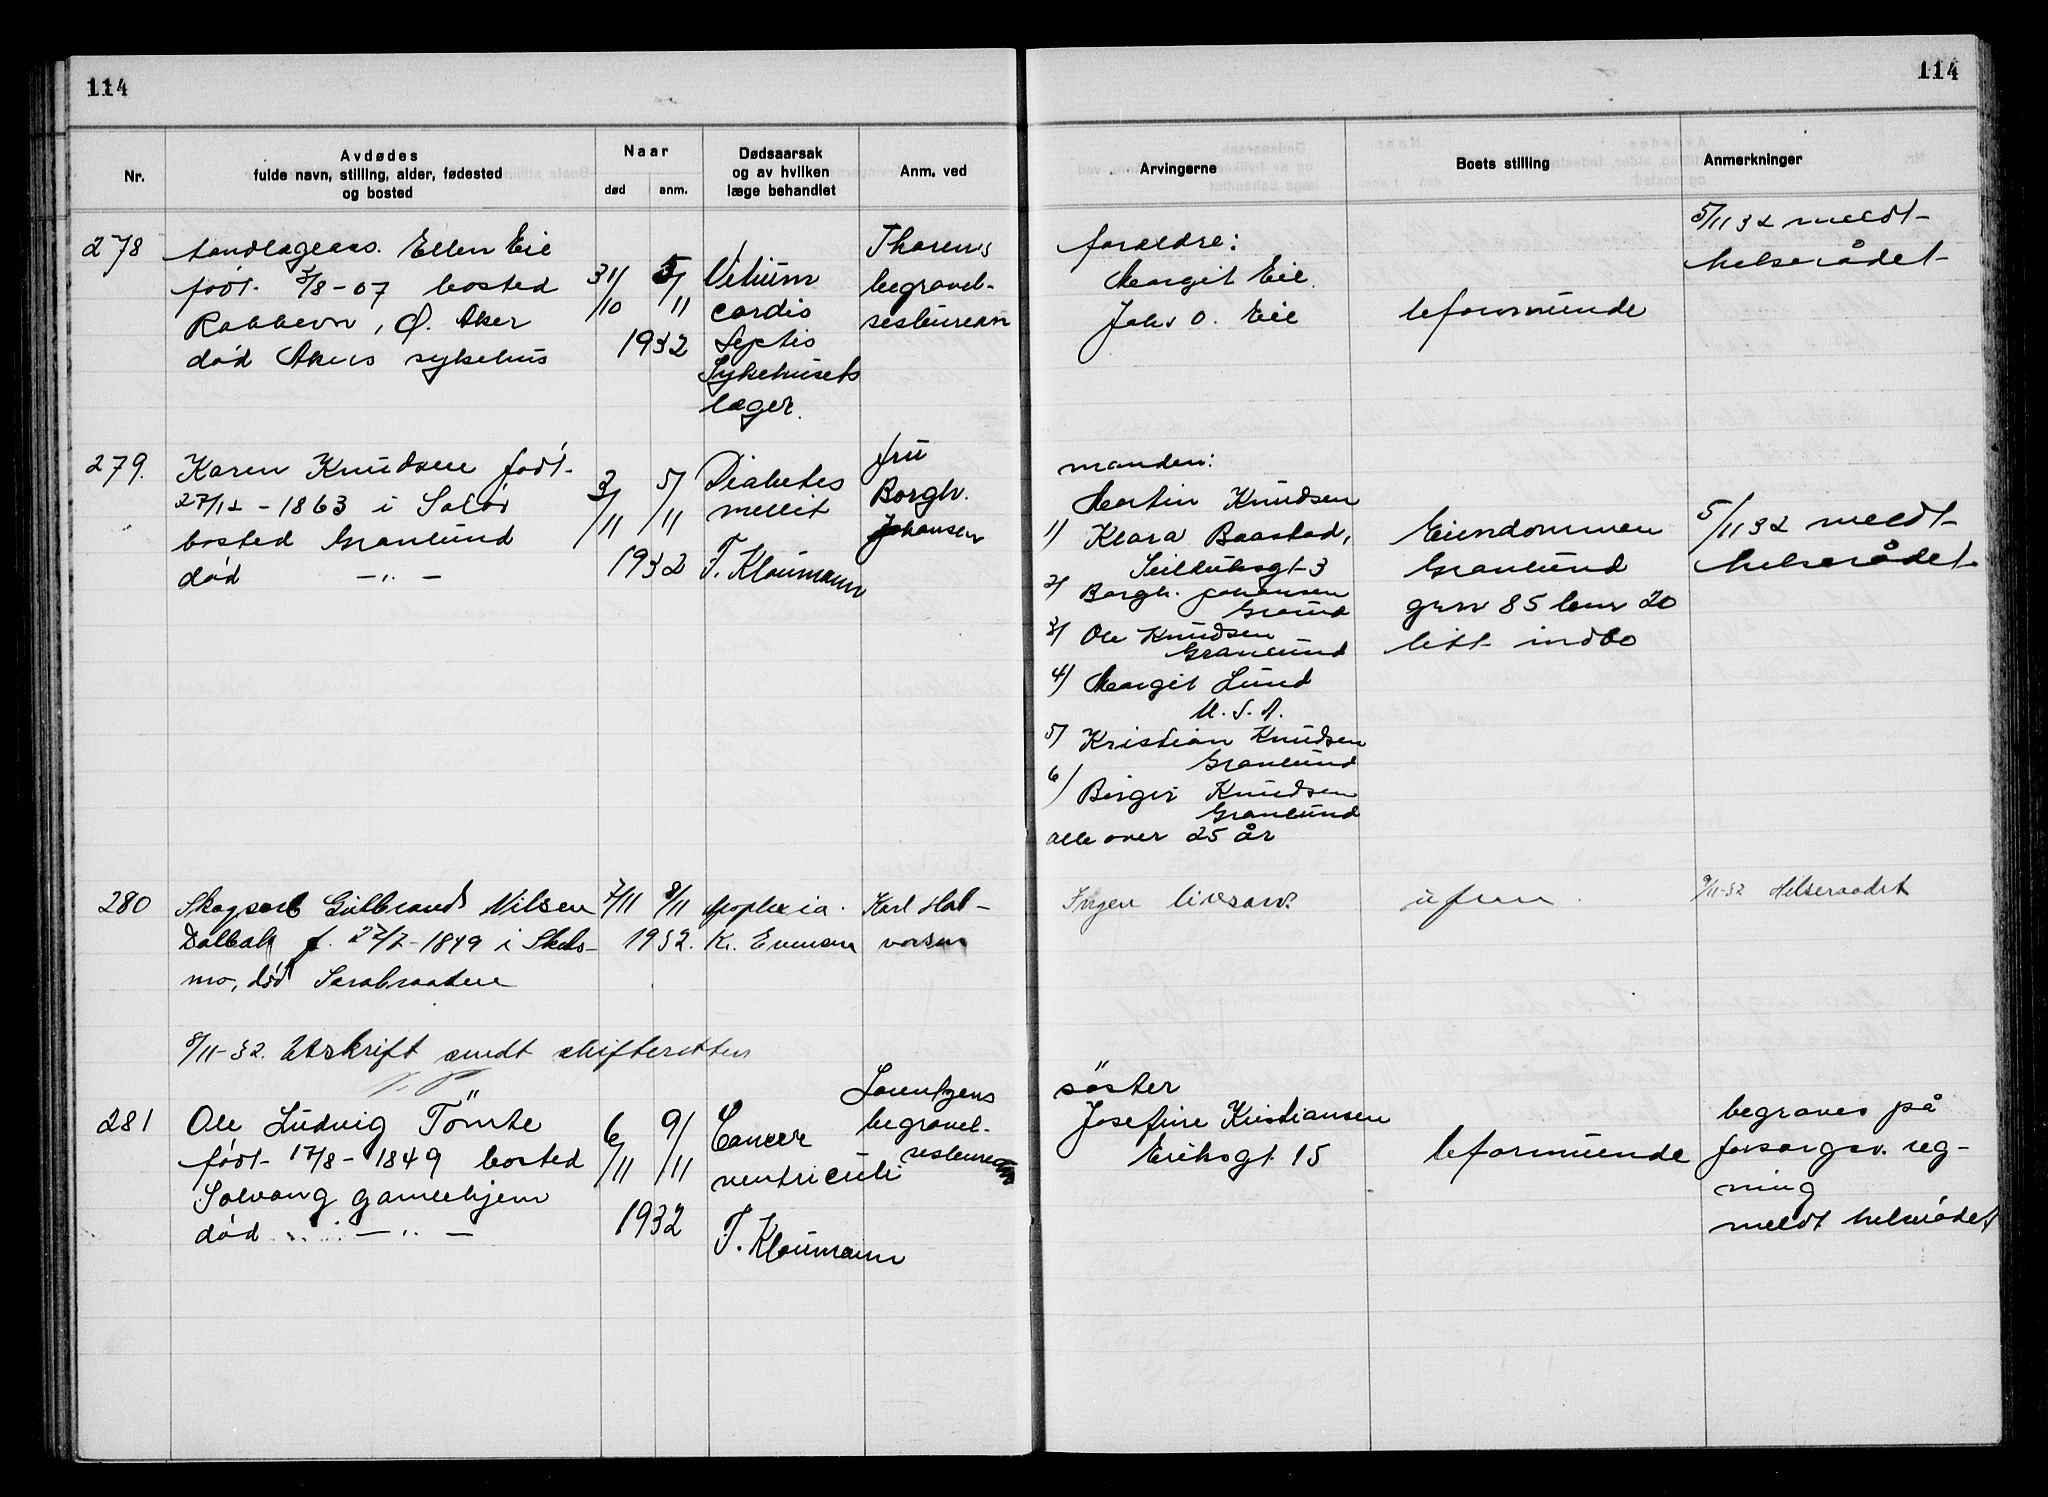 114
114
Nr.
Avdødes
fulde navn, stilling, alder, fødested
og bosted
Naar
død
anm.
Dødsaarsak
og av hvilken
læge behandlet
Anm. ved
Arvingerne
Boets stilling
Anmerkninger
278
tandlægeass. Ellen Eie
født 3/8-07 bosted
Rabbevn, Ø. Aker
død Akers sykehus
31/10
5/11
1932
Vitium
cordis
Septis
Sykehusets
læger.
Thorens
begravel-
sesbureau
foreldre:
Margit Eie.
Johs O. Eie
uformuende
5/11 32 meldt
helserådet
279.
Karen Knudsen født
27/12-1863 i Solør
bosted Granlund
død -"-
3/11
5/11
1932
Diabetes
mellit
T. Kloumann
fru
Borgh.
Johansen
manden:
Martin Knudsen
1) Klara Baastad,
Seilduksgt 3
2) Borgh. Johansen
3) Ole Knudsen
Granlund
4) Margit Lund
U.S.A.
5) Kristian Knudsen
Granlund
6) Birger Knudsen
Granlund
alle over 25 år
Eiendommen
Granlund
gnr 85 bnr 20
litt indbo
5/11 32 meldt
helserådet
280
Skogsarb Gulbrand Nilsen
Dalbak f. 22/7-1849 i Skeds-
mo, død Sarabraaten
7/11
8/11
1932.
Apoplexia.
Kr. Evensen
Karl Hal-
vorsen
Ingen livsarv.
uform
9/11-32 Helseraadet
8/11-32. Utskrift sendt skifteretten
281
Ole Ludvig Tömte
født 17/8-1849 bosted
Solvang gamlehjem
død -"-
6/11
9/11
1932
Cancer
ventriculi
T. Kloumann
Lorentzens
begravel-
sesbureau
söster
Josefine Kristiansen
Eriksgt 15
uformuende
begraves på
forsorgsv. reg-
ning
meldt helserådet